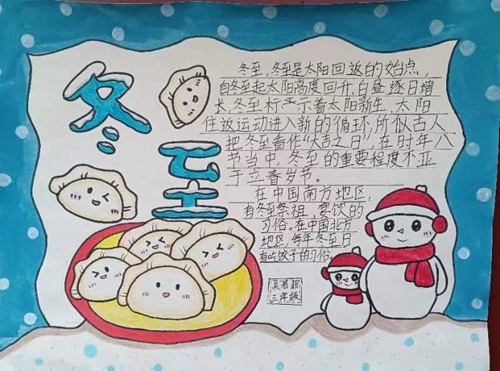 冬至
冬至,冬至是太阳回返的始点,
自冬至起太阳高度回升,白昼逐日增
长,冬至标示着太阳新生、太阳
往返运动进入新的循环,所以古人
把冬至看作"大吉之日",在时年八
节当中,冬至的重要程度不亚
于立春岁节。
在中国南方地区,
有冬至祭祖、宴饮的
习俗。在中国北方
地区,每年冬至日
有吃饺子的习俗。
三年级